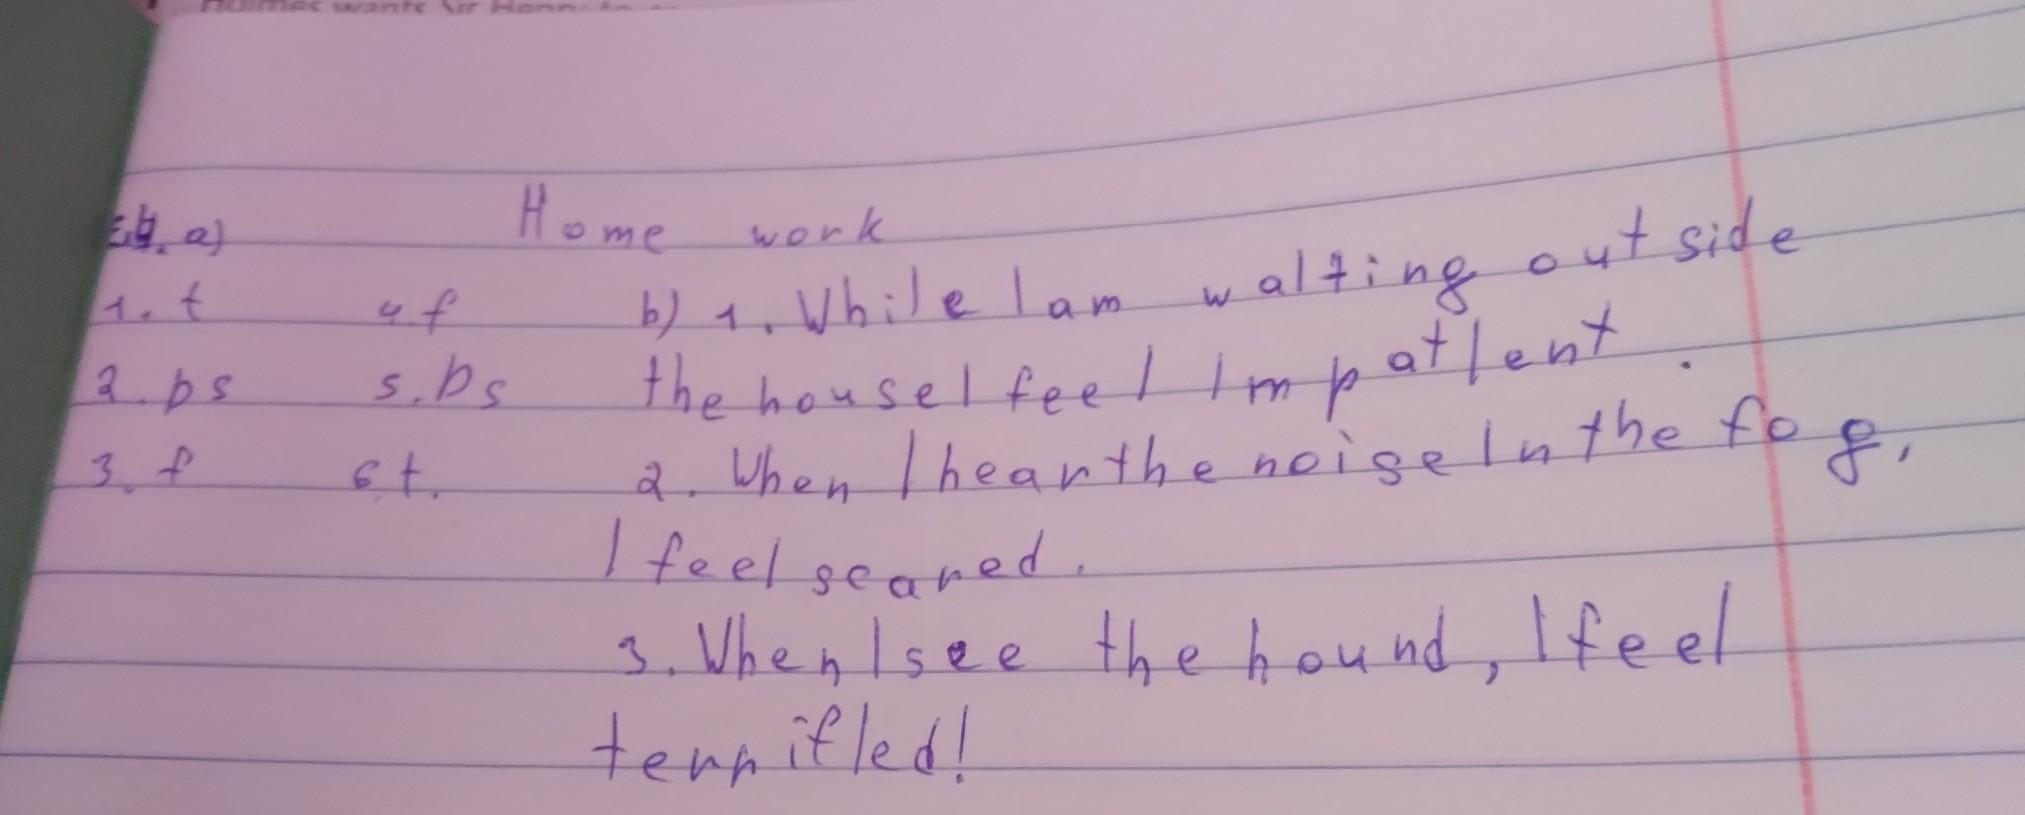 Holmes wants Sir Henry to
Ex. a) Home work
1. t 4 f b) 1. While I am waiting outside
2. bs 5. bs the house I feel Impatient.
3. f 6 t. 2. When I hear the noise In the fog,
I feel scared.
3. When I see the hound, I feel
terrified!